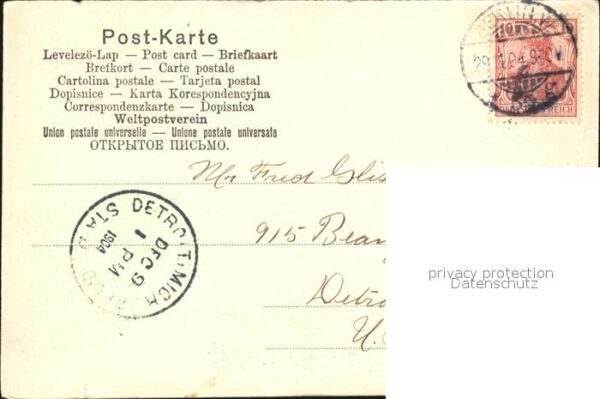 Post-Karte
Levelezö-Lap — Post card — Briefkaart
Brefkort — Carte postale
Cartolina postale — Tarjeta postal
Dopisnice — Karta Korespondencyjna
Correspondenzkarte — Dopisnica
Weltpostverein
Union postale universelle — Unione postale universale
ОТКРЫТОЕ ПИСЬМО.
10
REICH
Mr Fred
915
Detro
U.
DETROIT, MICH.
STA
DEC 9
1 PM
1904
privacy protection
Datenschutz